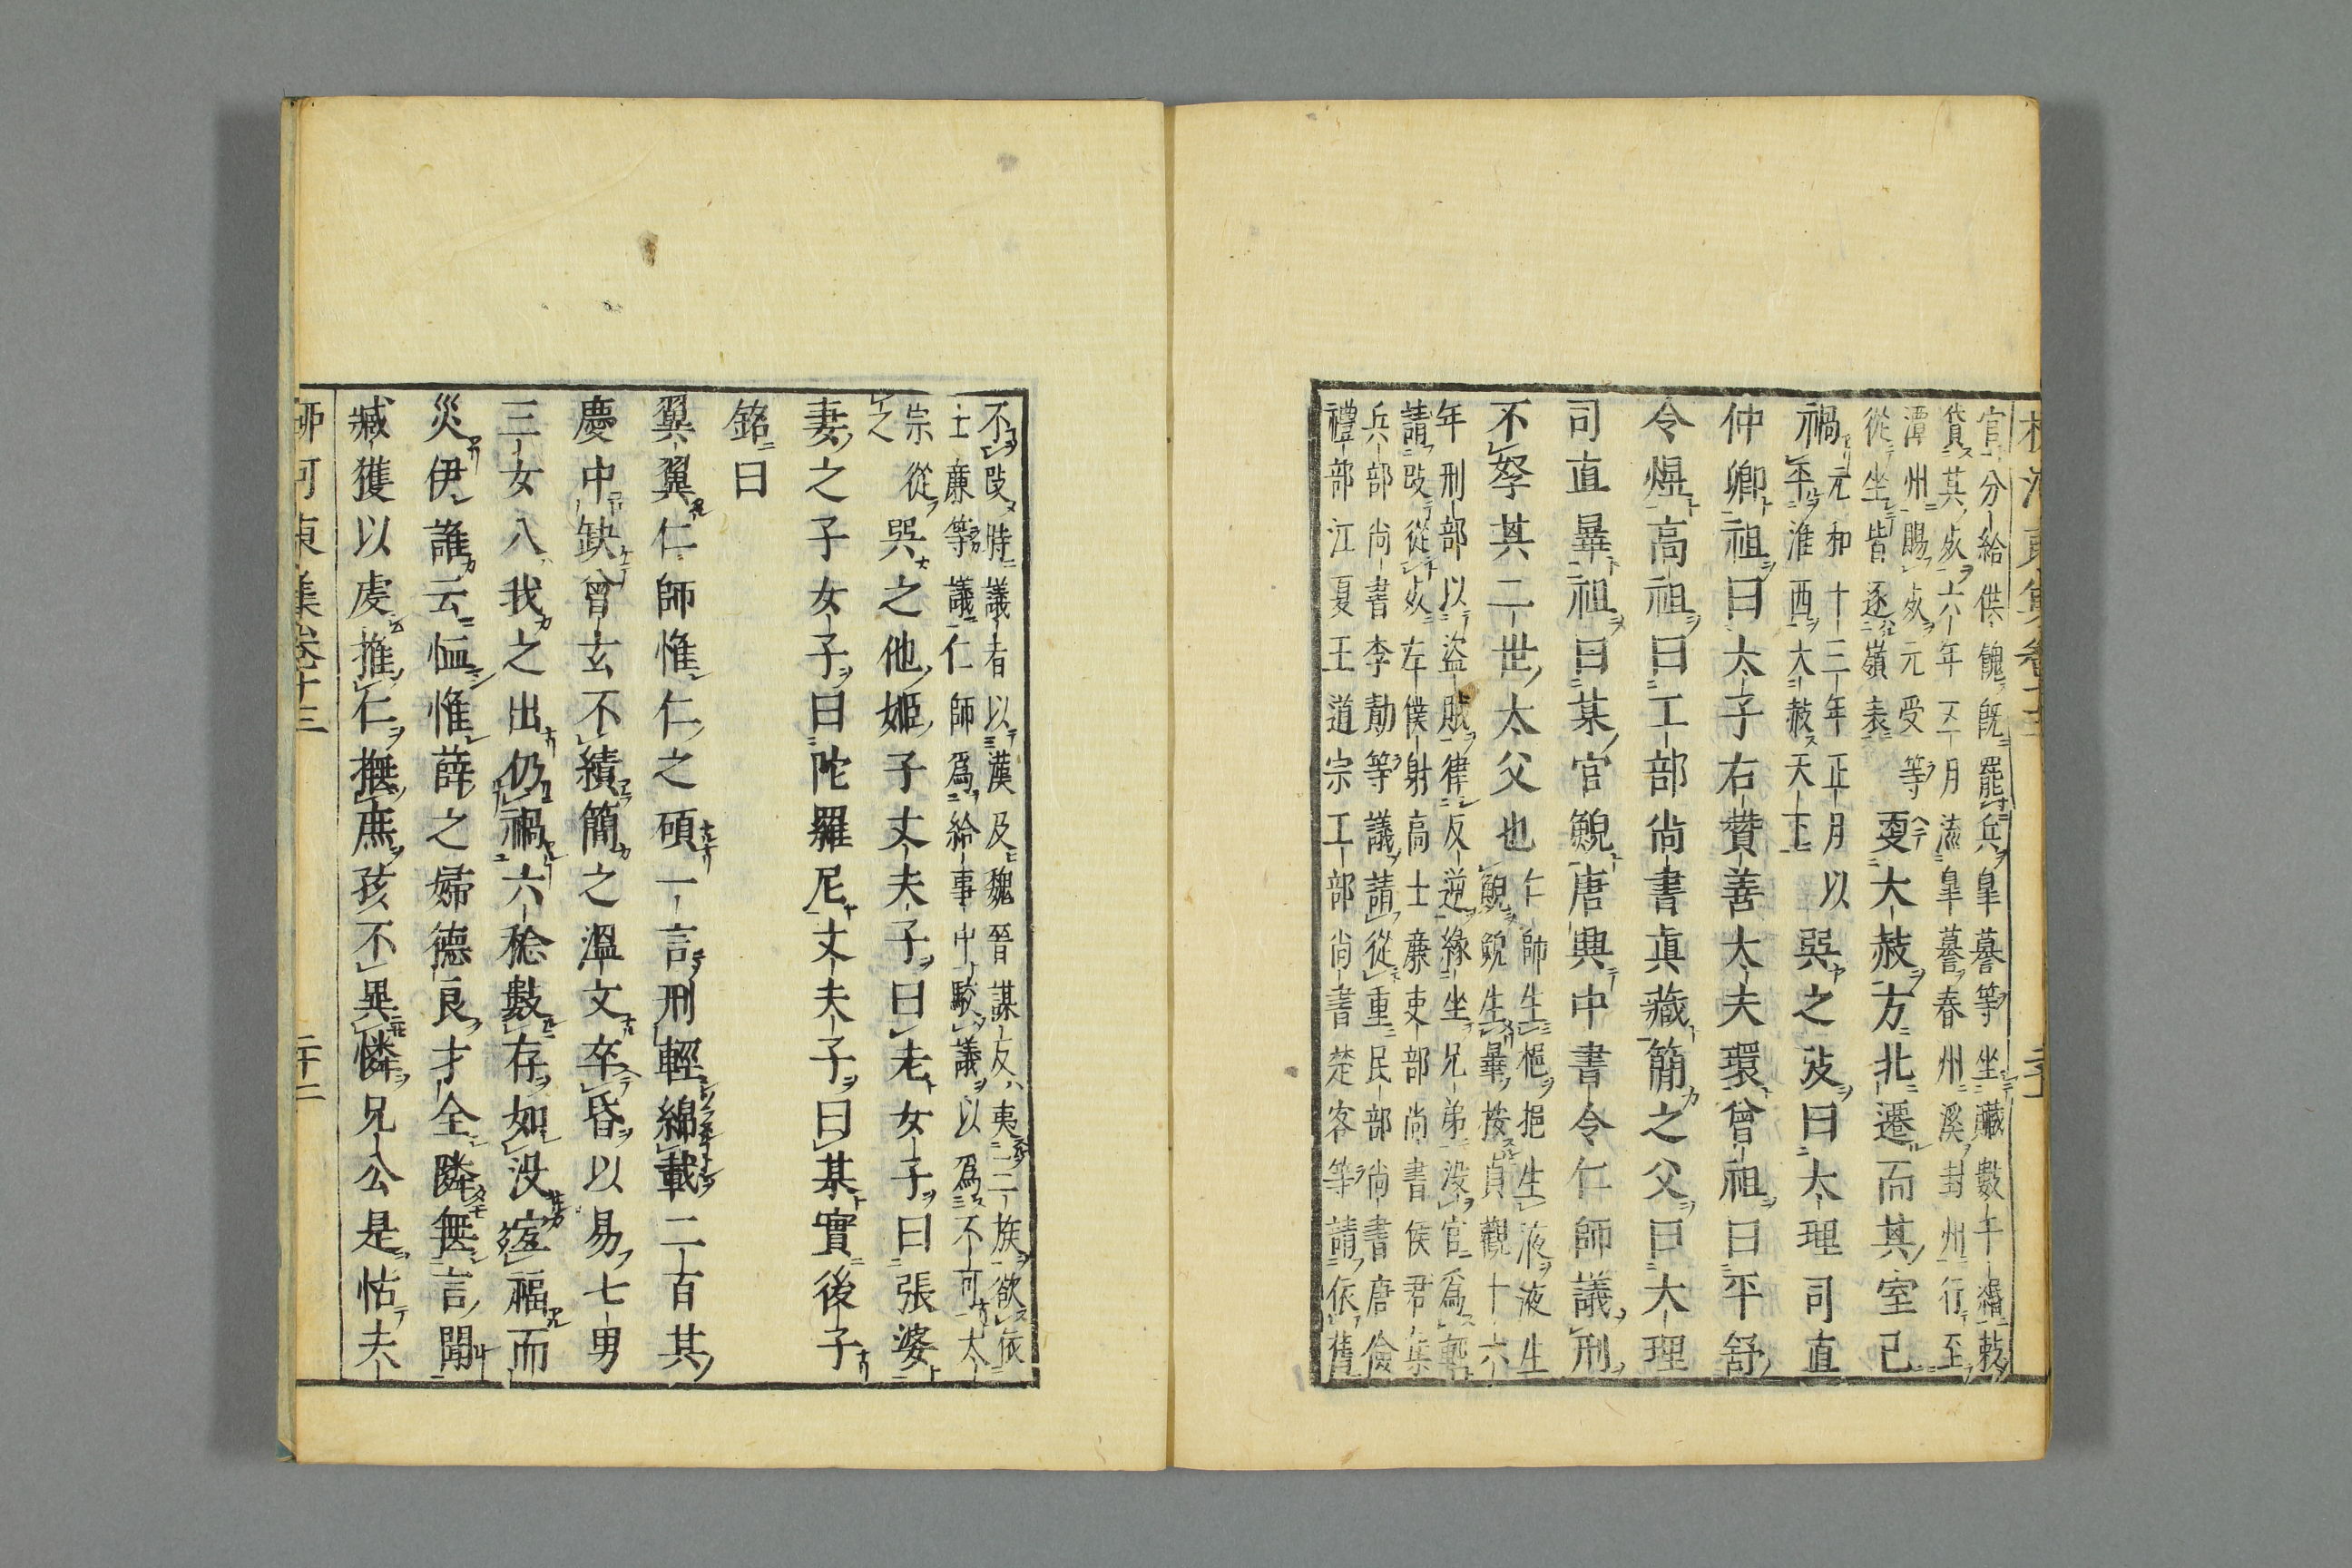 官分給供餽既罷兵臯謩等坐贓數千緡敕
貸其死六年五月流臯謩春州溪封州行至
潭州賜死元受等
從坐皆逐嶺表
更大赦方北遷而其室已
禍
元和十三年正月以
平淮西大赦天下
吳之攷曰大理司直
仲卿祖曰太子右贊善大夫環曾祖曰平舒
令煜高祖曰工部尚書眞藏簡之父曰大理
司直曅祖曰某官鯢唐興中書令仁師議刑
不孥其二世大父也
仁師生梔挹生液液生
鯢鯢生曅按貞觀十六
年刑部以盜賊律反逆緣坐兄弟沒官爲輕
請改從死左僕射高士廉吏部尚書侯君集
兵部尚書李勣等議請從重民部尚書唐儉
禮部江夏王道宗工部尚書楚客等請依舊
不改時議者以漢及魏晉謀反夷三族欲依
士廉等議仁師爲給事中駮議以爲不可太
宗從
之
吳之他姬子丈夫子曰老女子曰張婆
妻之子女子曰陀羅尼丈夫子曰某實後子
銘曰
翼翼仁師惟仁之碩一言刑輕綿載二百其
慶中缺曾玄不績簡之溫文卒昏以易七男
三女八我之出仍禍六稔數存如沒宜福而
災伊誰云恤惟薛之婦德良才全隣無言聞
臧獲以虔推仁撫庶孩不異憐兄公是怙夫
柳河東集卷十三 二十二